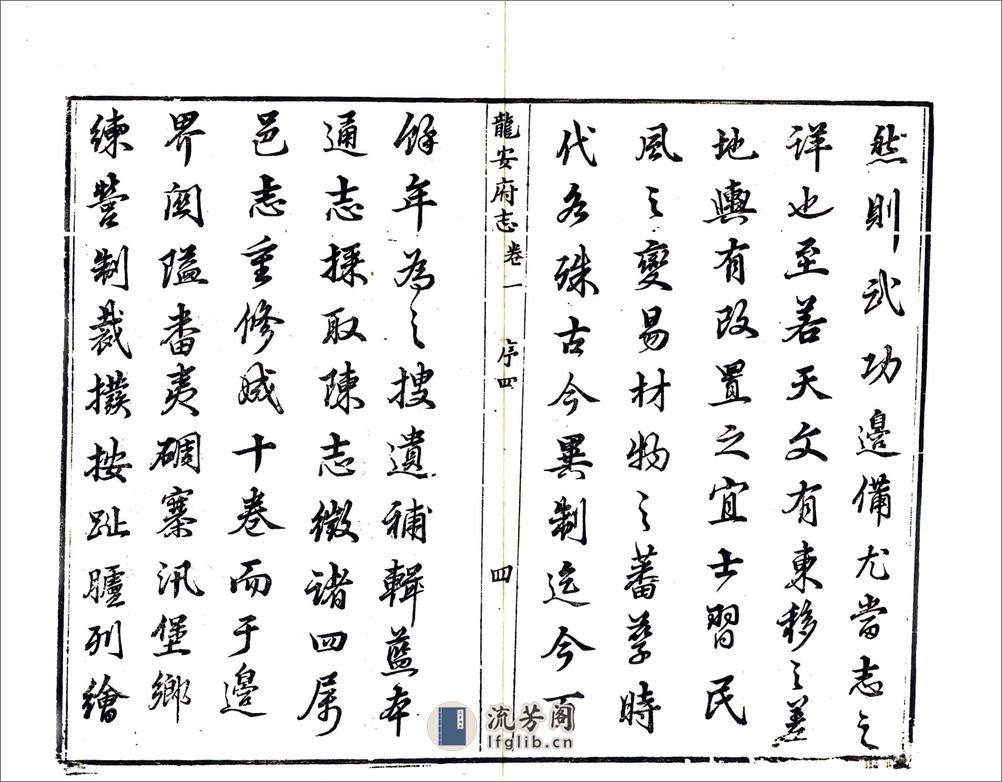 然則武功邊備尤當志之
詳也至若天文有東移之差
地輿有改置之宜士習民
風之變易材物之蕃孳時
代各殊古今異制迄今
龍安府志 卷一 序四 四
餘年為之搜遺補輯藍本
通志採取陳志徵諸四屬
邑志重修成十卷而于邊
界關隘番夷碉寨汛堡鄉
練營制裁按趾臚列繪
流芳阁
lfglib.cn